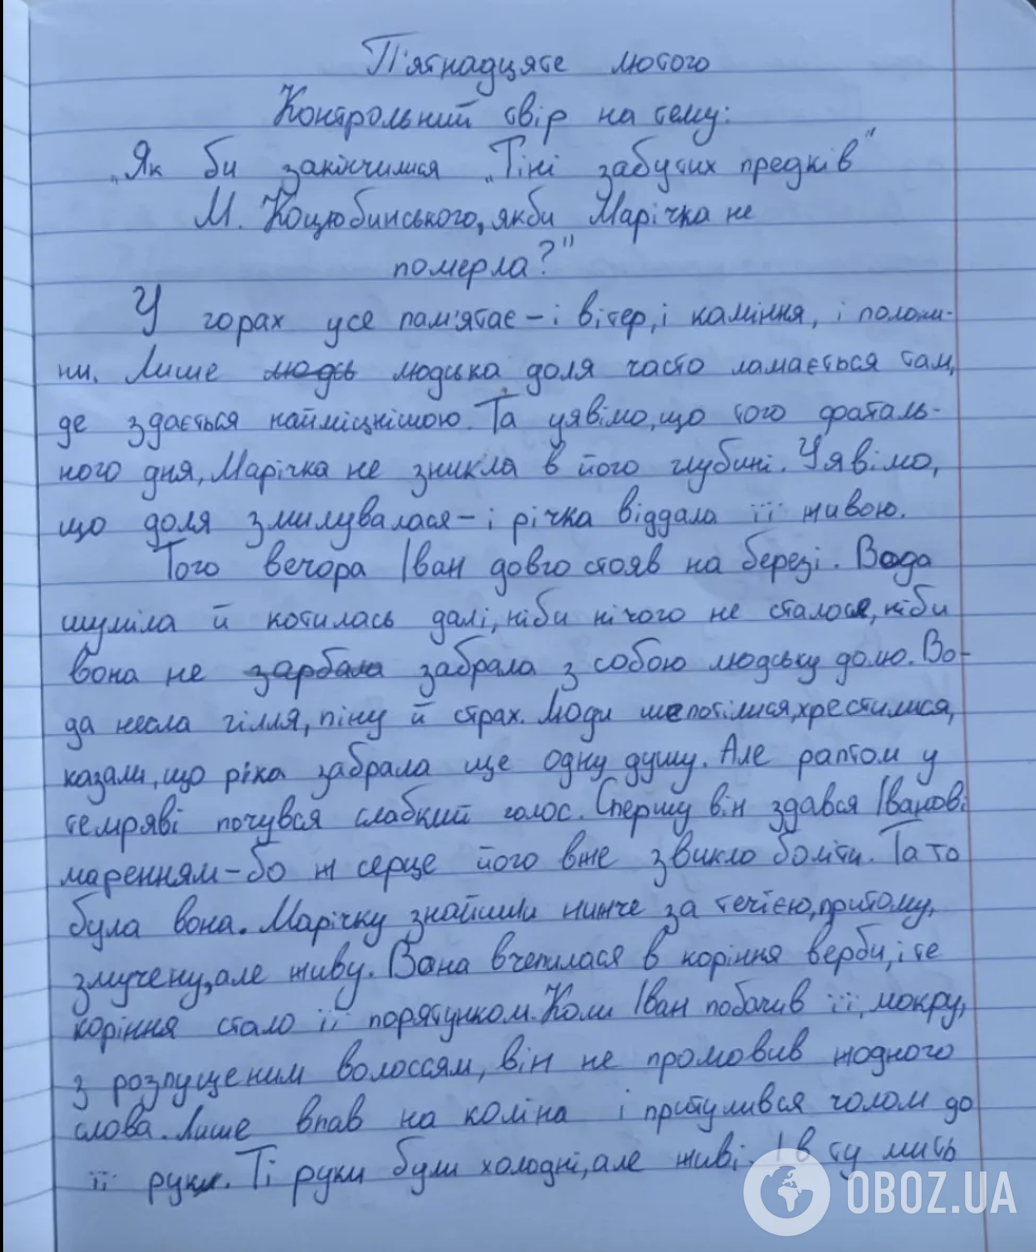 П'ятнадцяте лютого
Контрольний твір на тему:
„Як би закінчилися „Тіні забутих предків"
М. Коцюбинського, якби Марічка не
померла?"
У горах усе пам'ятає – і вітер, і каміння, і полони-
ни. Лише людсь людська доля часто ламається там,
де здається найміцнішою. Та уявімо, що того фаталь-
ного дня, Марічка не зникла в його глубині. Уявімо,
що доля змилувалася – і річка віддала її живою.
Того вечора Іван довго стояв на березі. Вода
шуміла й котилась далі, ніби нічого не сталося, ніби
вона не зарбала забрала з собою людську долю. Во-
да несла гілля, піну й страх. Люди шепотілися, хрестилися,
казали, що ріка забрала ще одну душу. Але раптом у
темряві почувся слабкий голос. Спершу він здався Іванові
маренням – бо ж серце його вже звикло боліти. Та то
була вона. Марічку знайшли нижче за течією, притому,
змучену, але живу. Вона вчепилася в коріння верби, і те
коріння стало її порятунком. Коли Іван побачив її, мокру,
з розпущеним волоссям, він не промовив жодного
слова. Лише впав на коліна і притулився чолом до
її руки. Ті руки були холодні, але живі. І в ту мить
OBOZ.UA